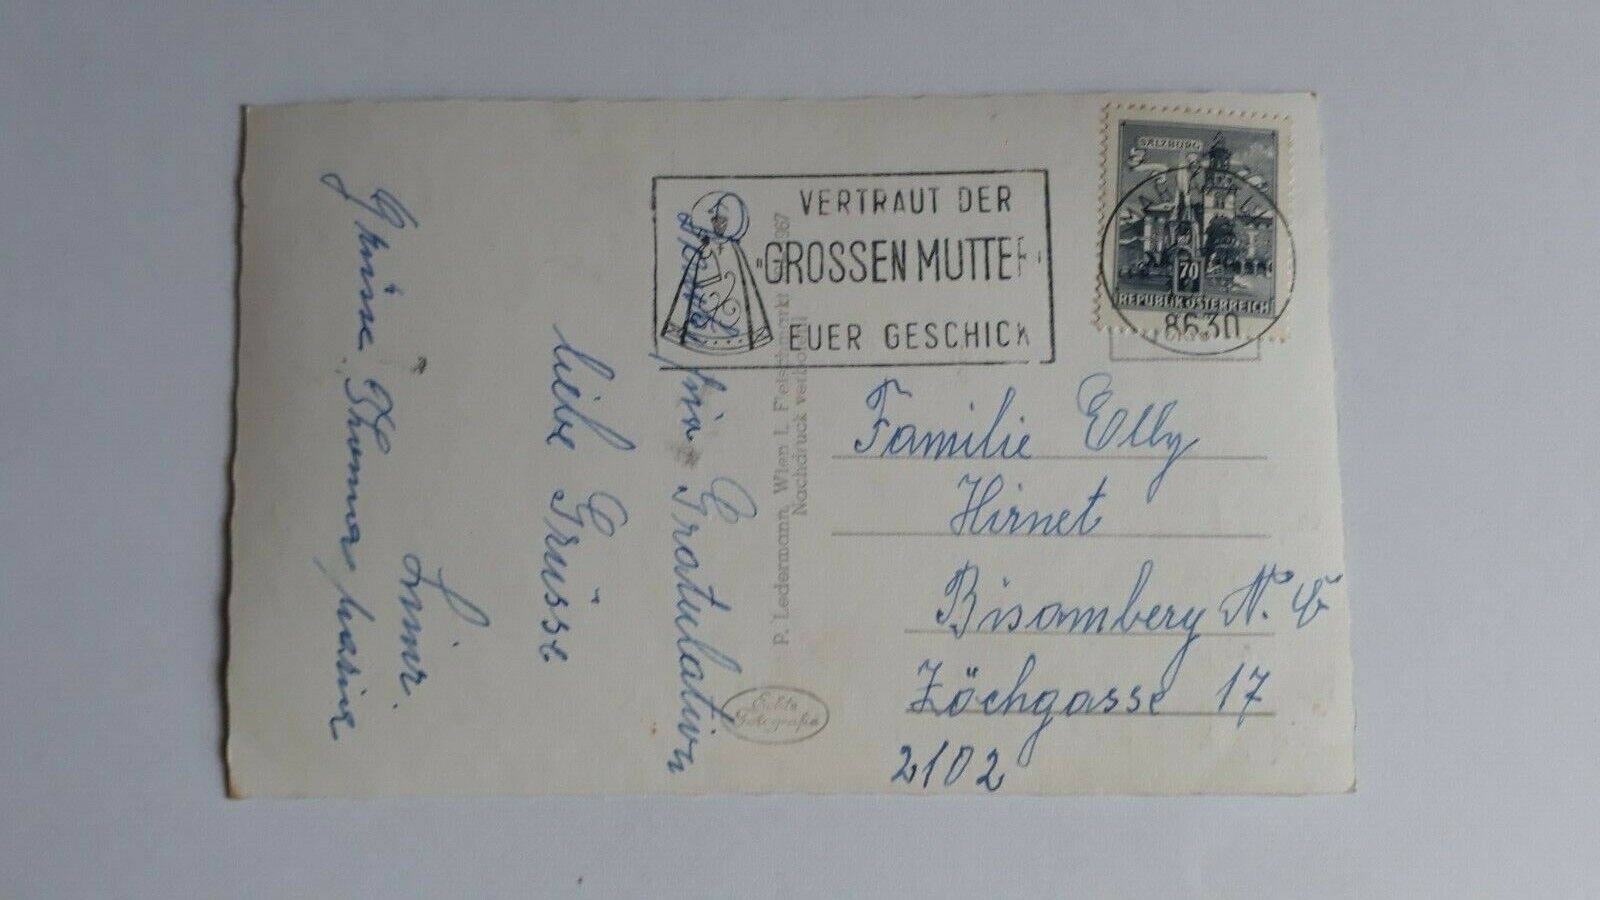 Danke für Gratulation
liebe Grüsse
Grüsse Thomas
VERTRAUT DER
"GROSSEN MUTTER"
EUER GESCHICK
SALZBURG
70
REPUBLIK ÖSTERREICH
8630
P. Ledermann, Wien I, Fleischmarkt 1967
Nachdruck verboten!
Echte
Fotografie
Familie Elly
Hirnet
Bisamberg N. Ö
Zöchgasse 17
2102